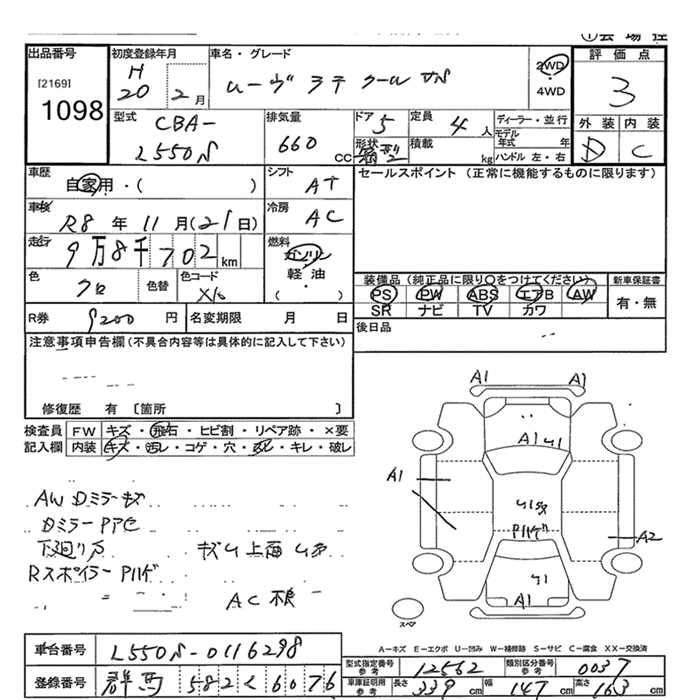 ①会場控
出品番号 初度登録年月 車名・グレード 評価点
[2169] H 20 2月 ムーヴ ラテ クール 2WD 3
1098 4WD
型式 CBA- L550S 排気量 660 cc ドア 5 定員 4 人 ディーラー・並行 外装 内装
形状 箱型 積載 kg モデル年式 年 D C
ハンドル 左・右
車歴 自家用・( ) シフト AT セールスポイント (正常に機能するものに限ります)
車検 R8 年 11 月(21日) 冷房 AC
走行 9万8千702 km 燃料 ガソリン
色 クロ 色替 色コード X16 軽・油
( )
装備品 (純正品に限り○をつけてください) 新車保証書
PS PW ABS エアB AW 有・無
SR ナビ TV カワ
R券 9200 円 名変期限 月 日 後日品
注意事項申告欄(不具合内容等は具体的に記入して下さい)
修復歴 有 〔箇所 〕
検査員 FW キズ・飛石・ヒビ割・リペア跡・×要
記入欄 内装 キズ・凹レ・コゲ・穴・スレ・キレ・破レ
A1 A1
A1 U1
A1
A2
Pハゲ
U1
A1
スペア
AW Dミラーキズ
Dミラー Pアセ
下廻りサ
Rスポイラー Pハゲ
AC 不良
A－キズ E－エクボ U－凹み W－補修跡 S－サビ C－腐食 XX－交換済
車台番号 L550S-0116298 型式指定番号 参考 12562 類別区分番号 参考 0037
登録番号 群馬 582 く 6076 車庫証明用 参考 長さ 339 cm 幅 147 cm 高さ 163 cm